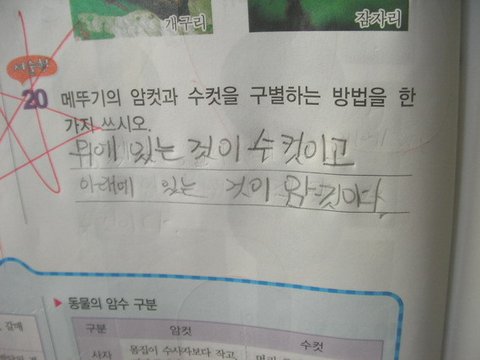 개구리
잠자리
서술형
20 메뚜기의 암컷과 수컷을 구별하는 방법을 한
가지 쓰시오.
위에 있는 것이 수컷이고
아래에 있는 것이 암컷이다.
▶ 동물의 암수 구분
구분 암컷 수컷
갈매
사자 몸집이 수사자보다 작고,